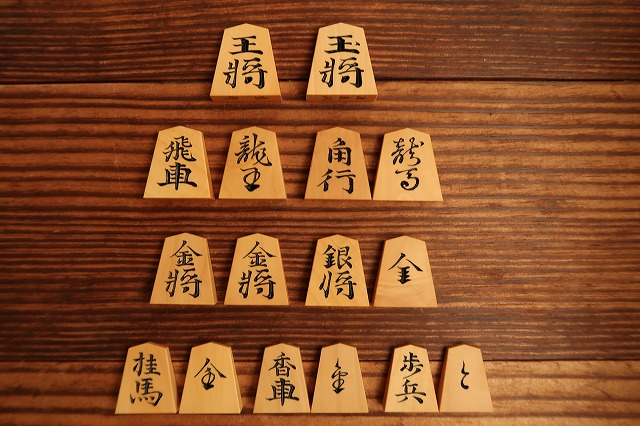 王將 玉將
飛車 龍王 角行 龍馬
金將 金將 銀將 全
桂馬 香車 歩兵 と